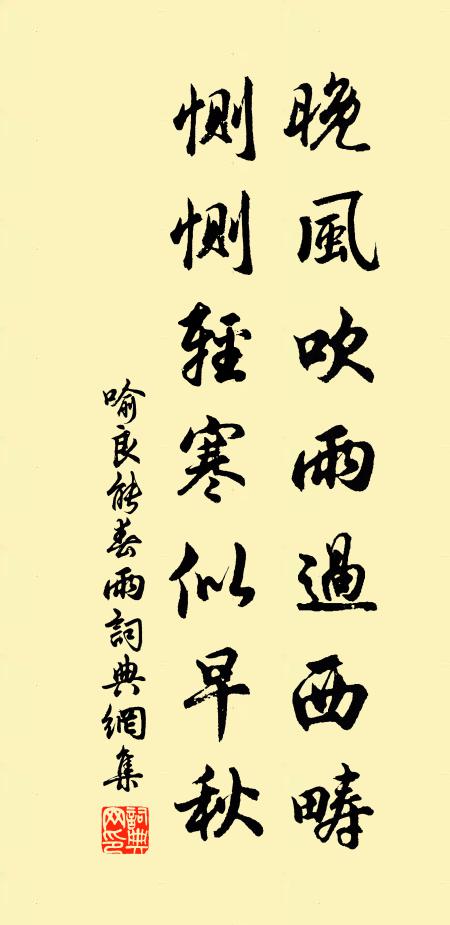 晚風吹雨過西疇
惻惻輕寒似早秋
喻良能春雨詞典網集
詞典網印